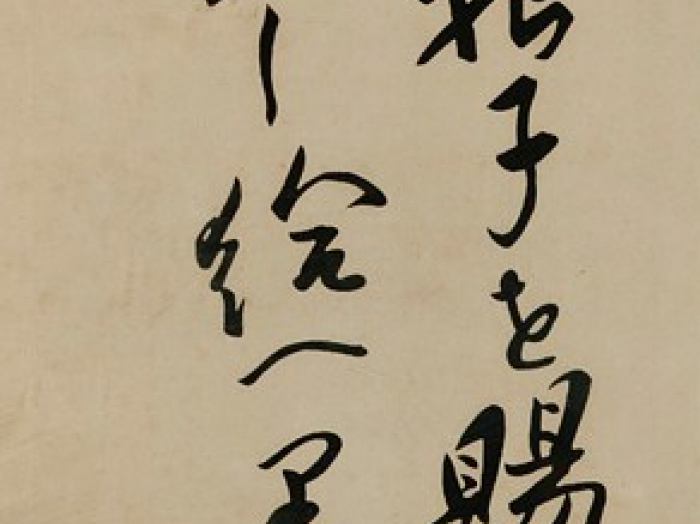 子を賜
し給へ